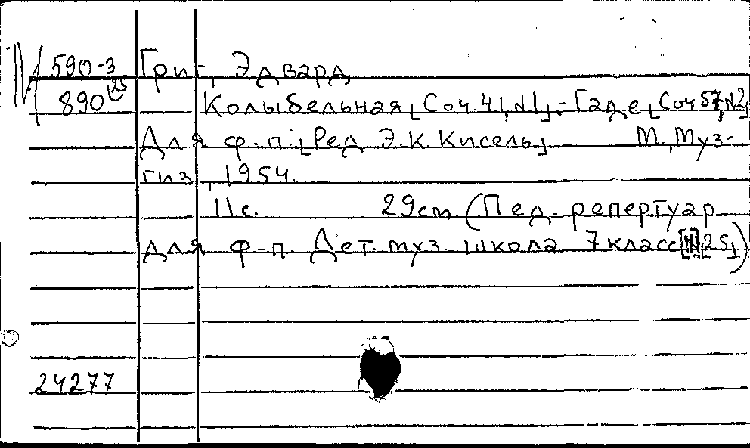 М 590-3 Григ, Эдвард
890
Колыбельная [Соч. 41, №1].-Гаде [Соч 57, №2]
Для ф.-п. [Ред. Э.К. Кисель] М., Муз-
гиз, 1954.
11 с. 29 cm (Пед. репертуар
для ф.-п. Дет. муз. школа 7 класс [№25])
24277